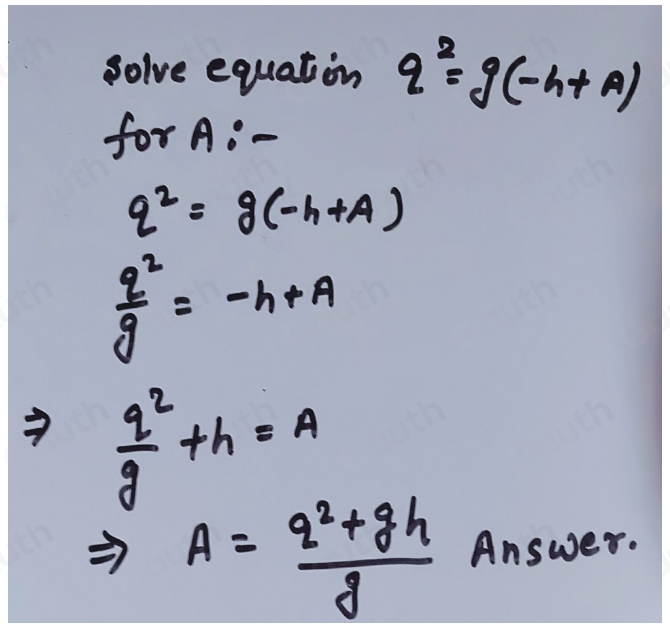 solve equation q² = g(-h+A)
for A :-
q² = g(-h+A)
q²/g = -h+A
⇒ q²/g +h = A
⇒ A = (q²+gh)/g Answer.